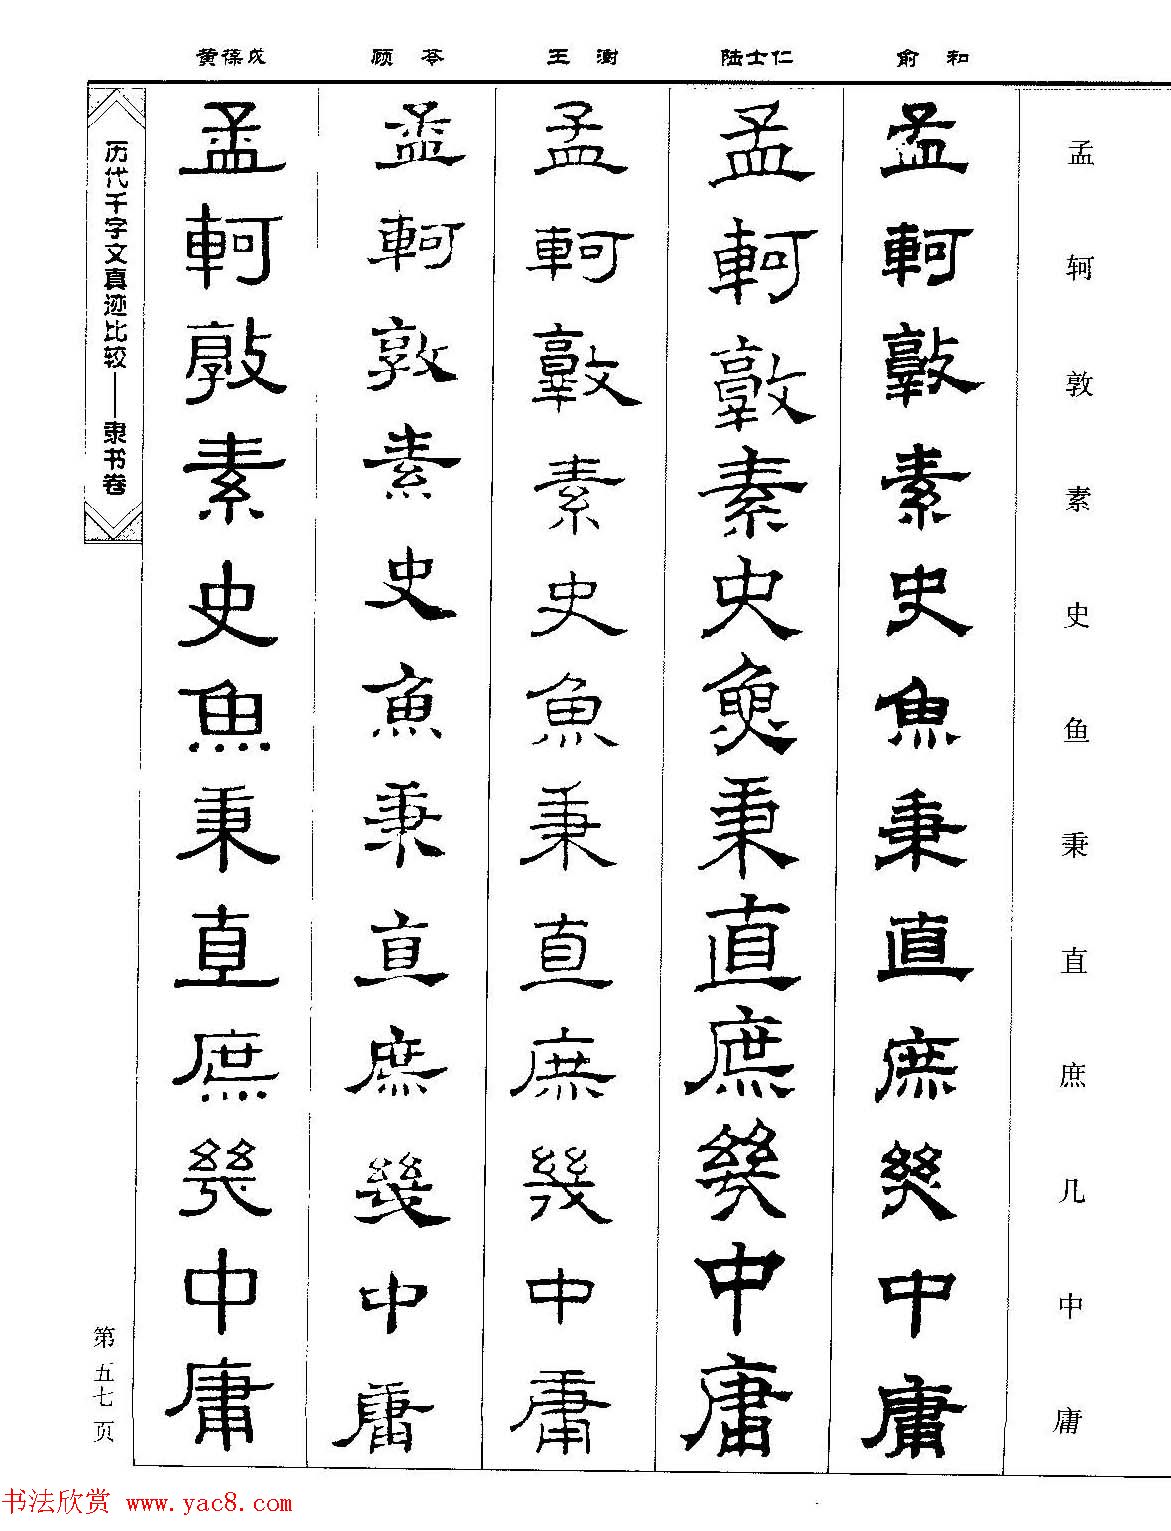 黄葆戉 顾苓 王澍 陆士仁 俞和
孟轲敦素史鱼秉直庶几中庸
孟軻敦素史魚秉直庶幾中庸
孟軻敦素史魚秉直庶幾中庸
孟軻敦素史魚秉直庶幾中庸
孟軻敦素史魚秉直庶幾中庸
孟軻敦素史魚秉直庶幾中庸
历代千字文真迹比较——隶书卷
第五七页
书法欣赏 www.yac8.com